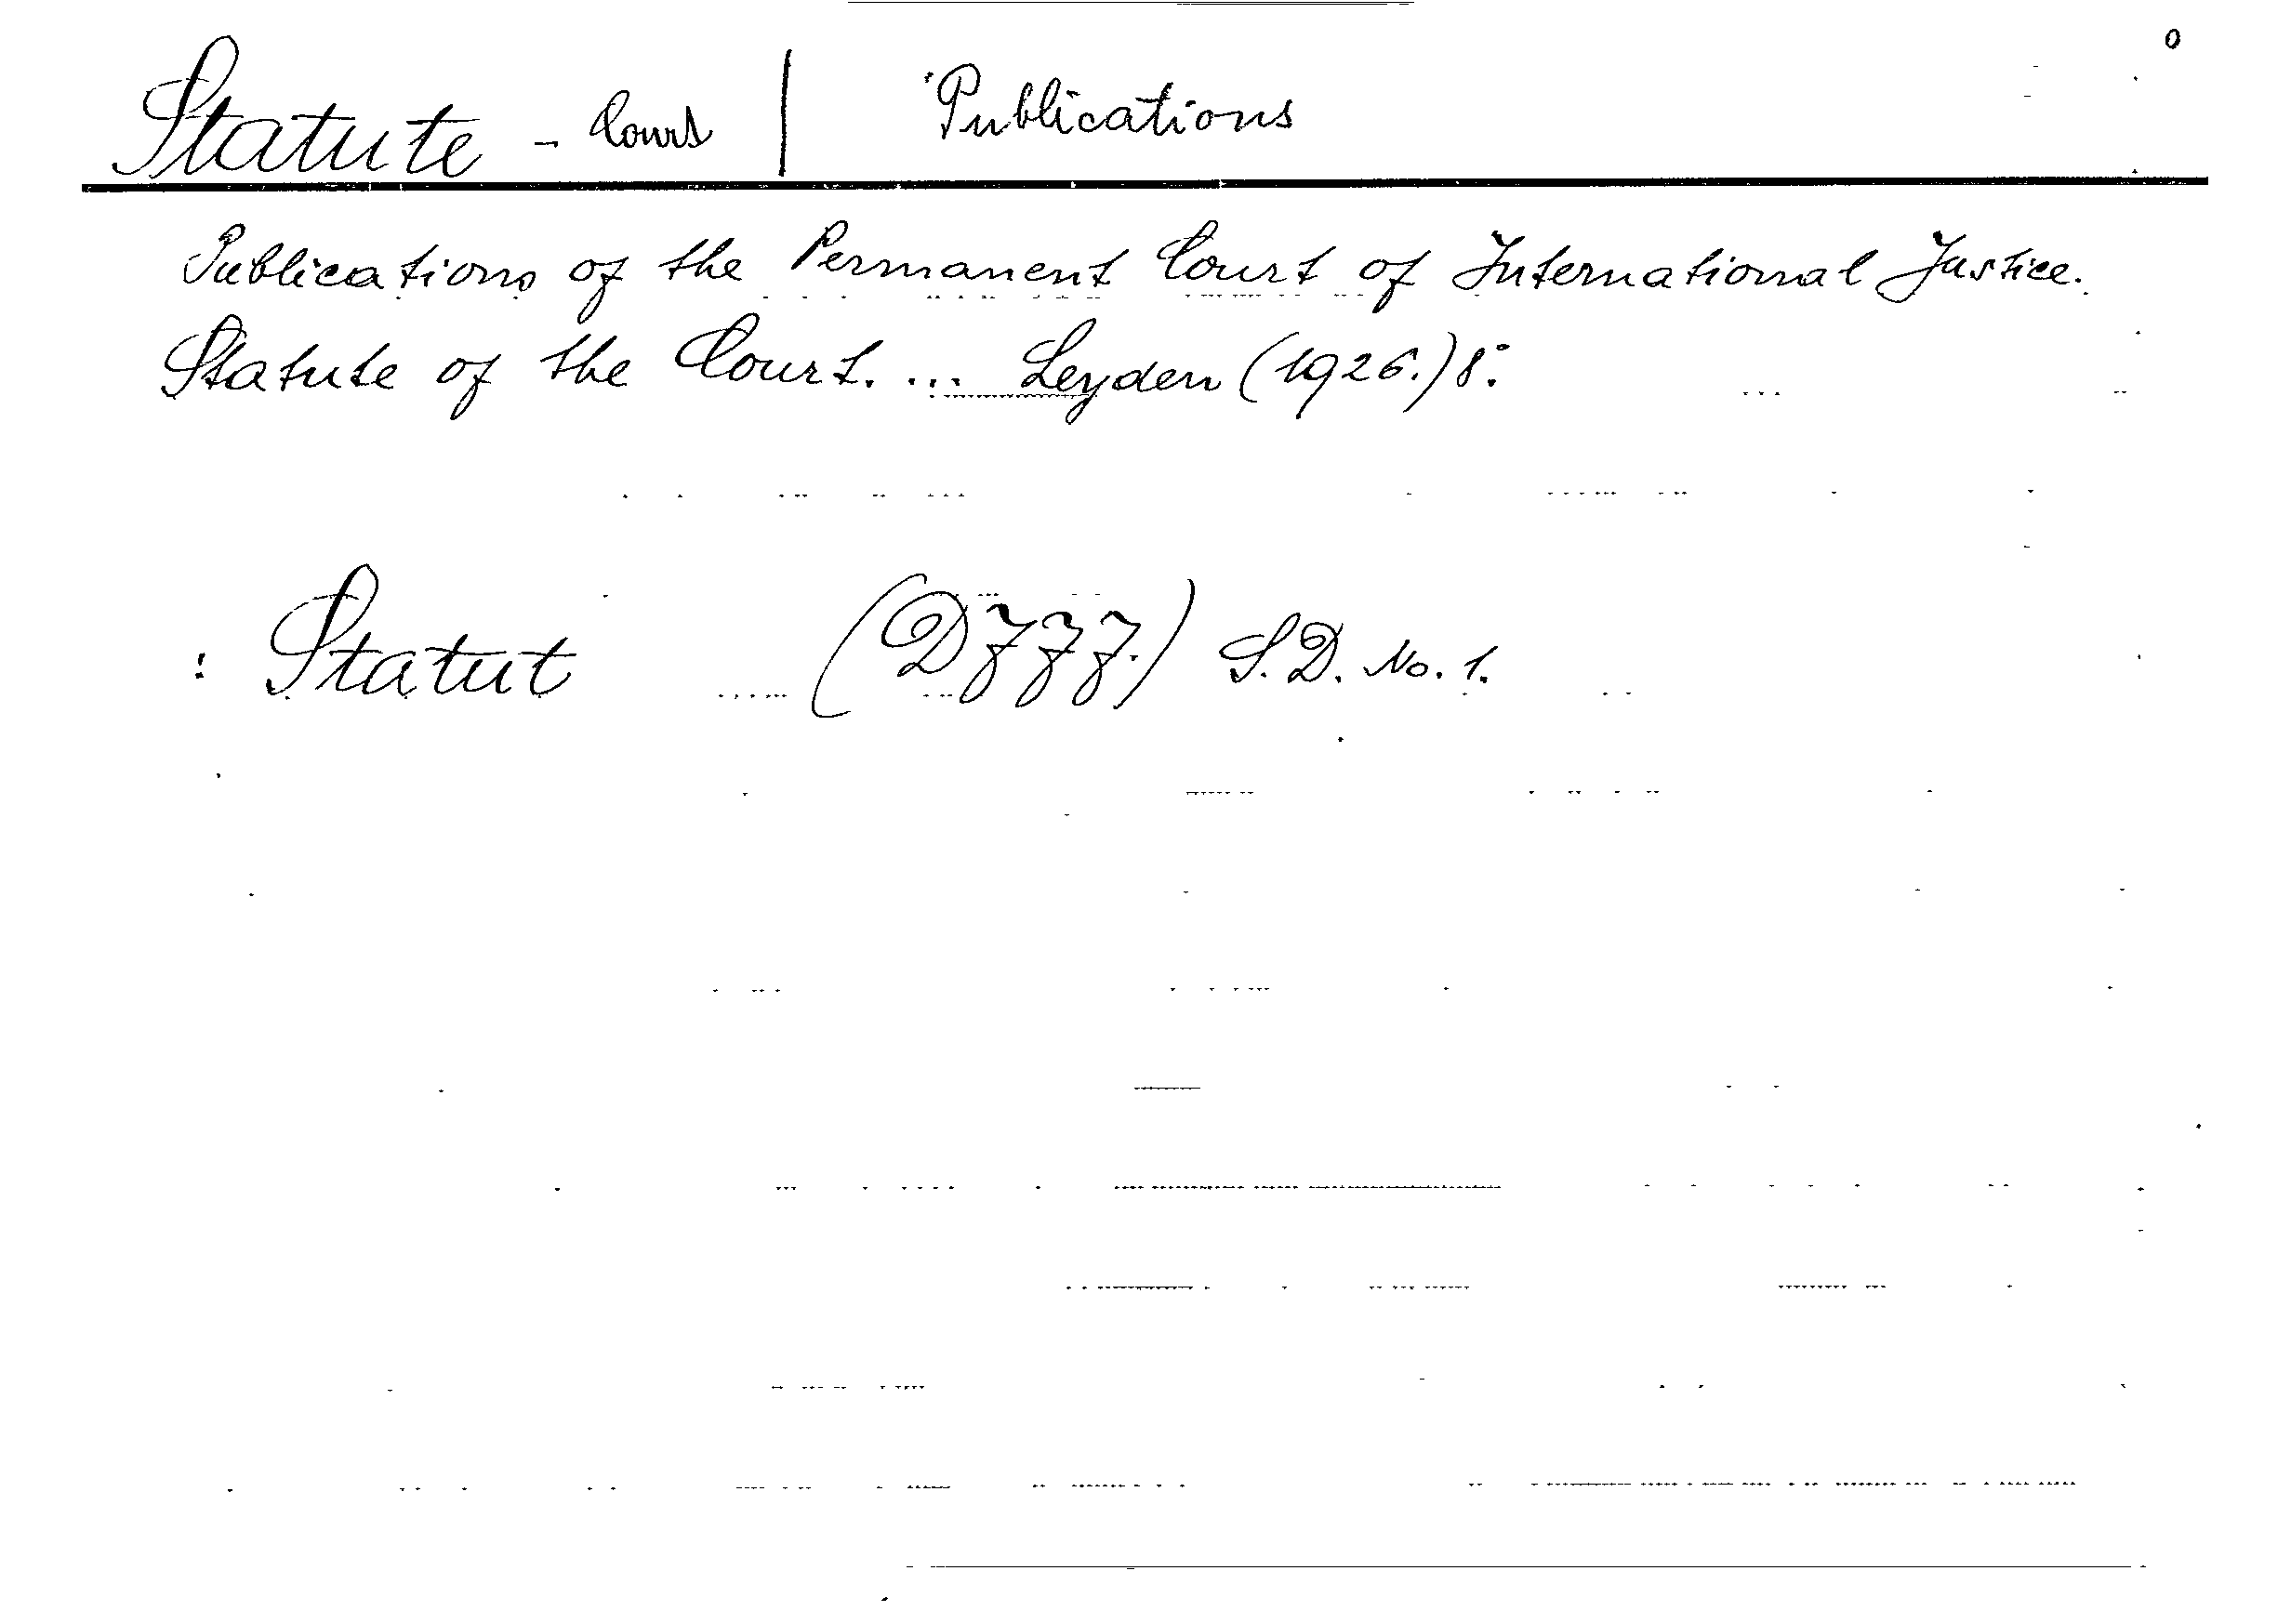 Statute - Court | Publications
Publications of the Permanent Court of International Justice.
Statute of the Court. ... Leyden (1926.) 8°.
: Statut (DJJJ.) S.D. No. 1.